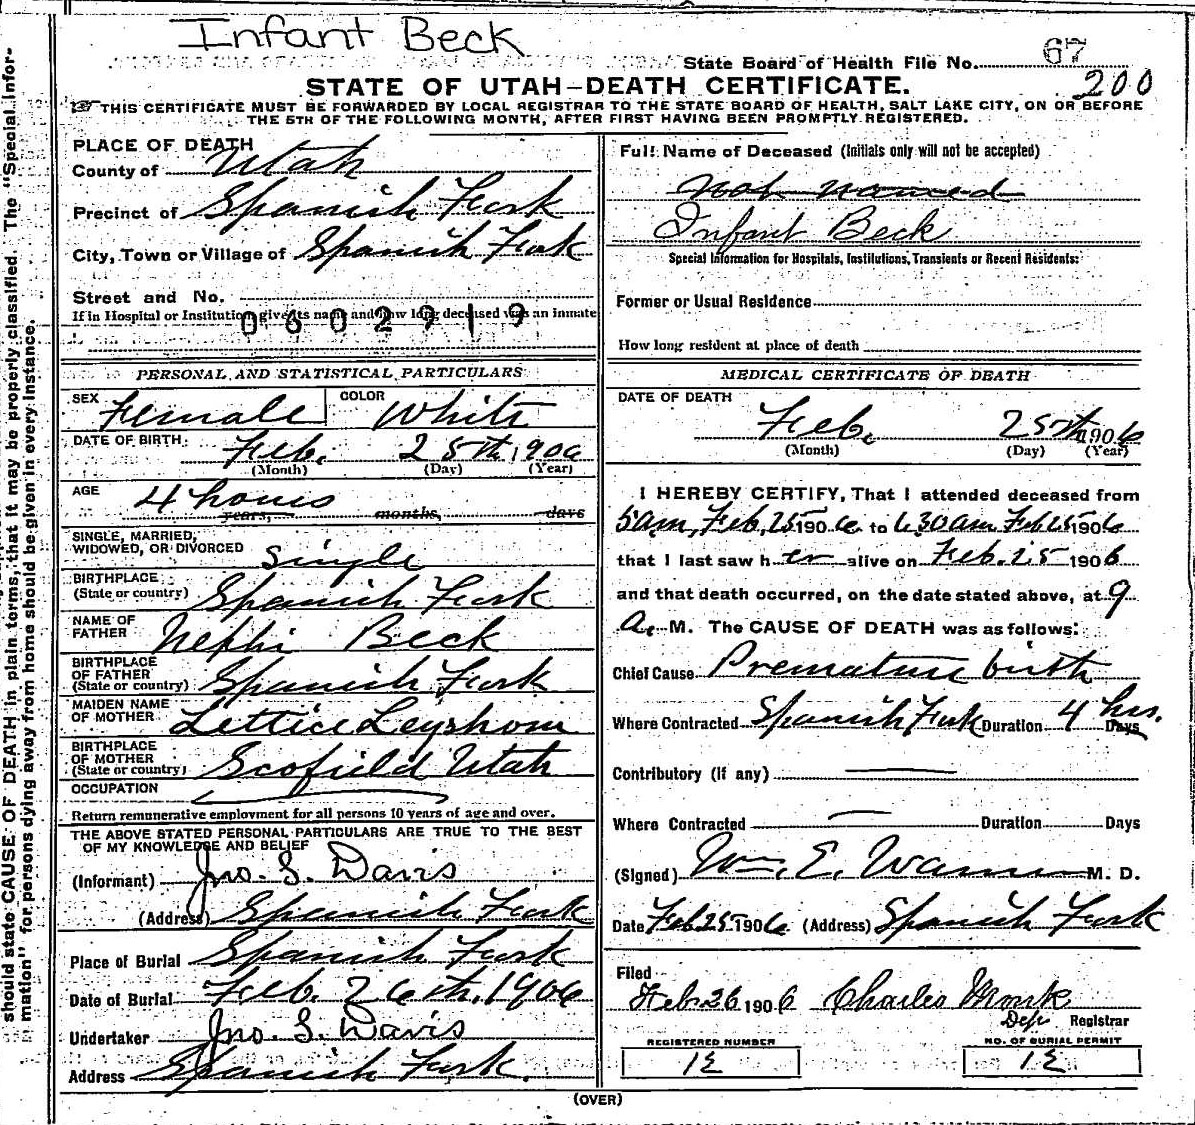 Infant Beck
State Board of Health File No. 67
200
STATE OF UTAH—DEATH CERTIFICATE.
THIS CERTIFICATE MUST BE FORWARDED BY LOCAL REGISTRAR TO THE STATE BOARD OF HEALTH, SALT LAKE CITY, ON OR BEFORE
THE 5TH OF THE FOLLOWING MONTH, AFTER FIRST HAVING BEEN PROMPTLY REGISTERED.
should state CAUSE OF DEATH in plain terms, that it may be properly classified. The "Special Infor-
mation" for persons dying away from home should be given in every instance.
PLACE OF DEATH
County of Utah
Precinct of Spanish Fork
City, Town or Village of Spanish Fork
Street and No.
If in Hospital or Institution give its name and how long deceased was an inmate
06 02919
PERSONAL AND STATISTICAL PARTICULARS
SEX Female COLOR White
DATE OF BIRTH Feb. 25th, 1906
(Month) (Day) (Year)
AGE 4 hours
years, months, days
SINGLE, MARRIED,
WIDOWED, OR DIVORCED Single
BIRTHPLACE
(State or country) Spanish Fork
NAME OF
FATHER Nephi Beck
BIRTHPLACE
OF FATHER
(State or country) Spanish Fork
MAIDEN NAME
OF MOTHER Lettice Leyshom
BIRTHPLACE
OF MOTHER
(State or country) Scofield Utah
OCCUPATION
Return remunerative employment for all persons 10 years of age and over.
THE ABOVE STATED PERSONAL PARTICULARS ARE TRUE TO THE BEST
OF MY KNOWLEDGE AND BELIEF
(Informant) Jno. S. Davis
(Address) Spanish Fork
Place of Burial Spanish Fork
Date of Burial Feb. 26th, 1906
Undertaker Jno. S. Davis
Address Spanish Fork.
Full Name of Deceased (Initials only will not be accepted)
Not named
Infant Beck
Special Information for Hospitals, Institutions, Transients or Recent Residents:
Former or Usual Residence
How long resident at place of death
MEDICAL CERTIFICATE OF DEATH
DATE OF DEATH
Feb. 25th 1906
(Month) (Day) (Year)
I HEREBY CERTIFY, That I attended deceased from
5am, Feb, 25 1906 to 6.30am Feb 25 1906
that I last saw her alive on Feb. 25 1906
and that death occurred, on the date stated above, at 9
A. M. The CAUSE OF DEATH was as follows:
Chief Cause Premature birth
Where Contracted Spanish Fork Duration 4 hrs. Days
Contributory (if any)
Where Contracted Duration Days
(Signed) Wm. E. Warner M. D.
Date Feb 25 1906 (Address) Spanish Fork
Filed
Feb 26 1906 Charles Monk
Dep Registrar
REGISTERED NUMBER
NO. OF BURIAL PERMIT
(OVER)